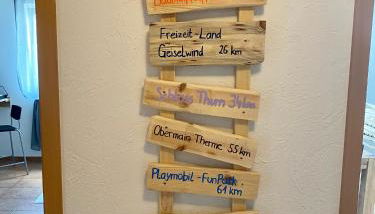 Freizeit-Land
Geiselwind 26 km
Schloss Thurn 34 km
Obermain Therme 55 km
Playmobil-FunPark
61 km